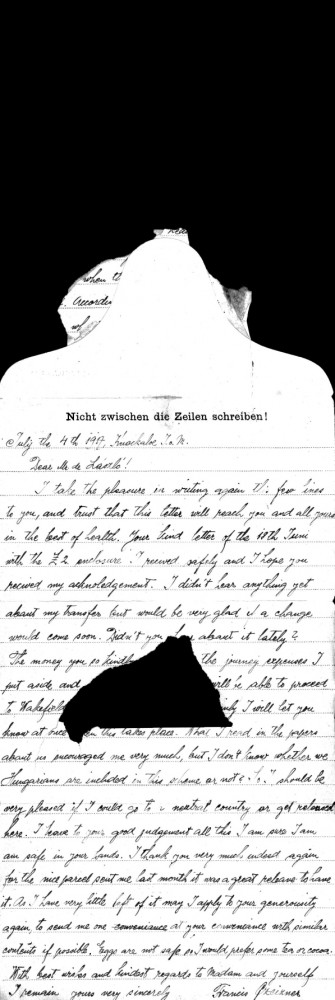 when th
Accordin
wh
Nicht zwischen die Zeilen schreiben!
July the 4th 1917. Knockaloe. I.o.M.
Dear Mr de László!
I take the pleasure in writing again th. few lines
to you, and trust that this letter will reach you and all yours
in the best of health. Your kind letter of the 18th Juni
with the £2 enclosure I received safely and I hope you
received my acknoledgement. I didn't hear anything yet
about my transfer but would be very glad if a change
would come soon. Didn't you hear about it lately?
The money you so kindly the journey expenses I
put aside and will be able to proceed
to Wakefield only I will let you
know at once when this takes place. What I read in the papers
about us encouraged me very much, but I don't know whether we
Hungarians are included in this scheme or not? So I should be
very pleased if I could go to a neutral country or get released
here. I leave to your good judgement all this. I am sure I am
am safe in your hands. I thank you very much indeed again
for the nice parcel sent me last month it was a great pleasure to have
it. As I have very little left of it may I apply to your generousity
again to send me one conveniance at your convenance with similar
contents if possible. Eggs are not safe so I would prefer some tea or cocoa.
With best wishes and kindest regards to Madam and yourself
I remain yours very sincerely Francis